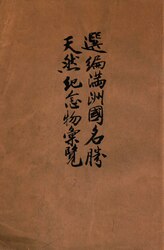 選編滿洲國名勝
天然紀念物彙覽